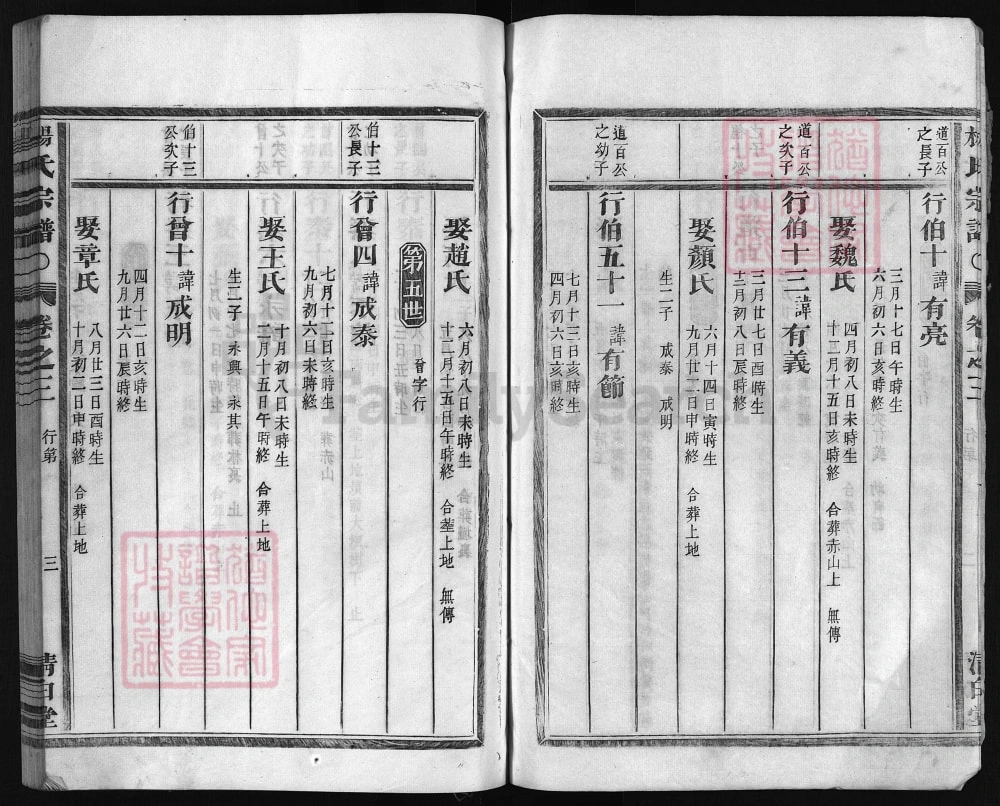 楊氏宗譜
卷之三
行第
清白堂
道百公
之長子
行伯十 諱有亮
三月十七日午時生
六月初六日亥時終
娶魏氏
四月初八日未時生
十二月十五日亥時終 合葬赤山上 無傳
道百公
之次子
行伯十三 諱有義
三月廿七日酉時生
十二月初六日亥時終
娶顏氏
六月十四日寅時生
九月廿二日申時終 合葬上地
生二子 成泰 成明
道百公
之幼子
行伯五十一 諱有節
七月十三日亥時生
四月初六日亥時終
娶趙氏
六月初八日未時生
十二月十五日午時終 合塟上地 無傳
第五世
曾字行
伯十三
公長子
行曾四 諱成泰
七月十二日亥時生
九月初六日未時終
娶王氏
十月初八日未時生
二月十五日午時終 合葬上地
生二子 永興 永其
伯十三
公次子
行曾十 諱成明
四月十二日亥時生
九月廿六日辰時終
娶章氏
八月廿三日酉時生
十月初二日申時終 合葬上地
楊氏宗譜
卷之三
行第
三
清白堂
FamilySearch